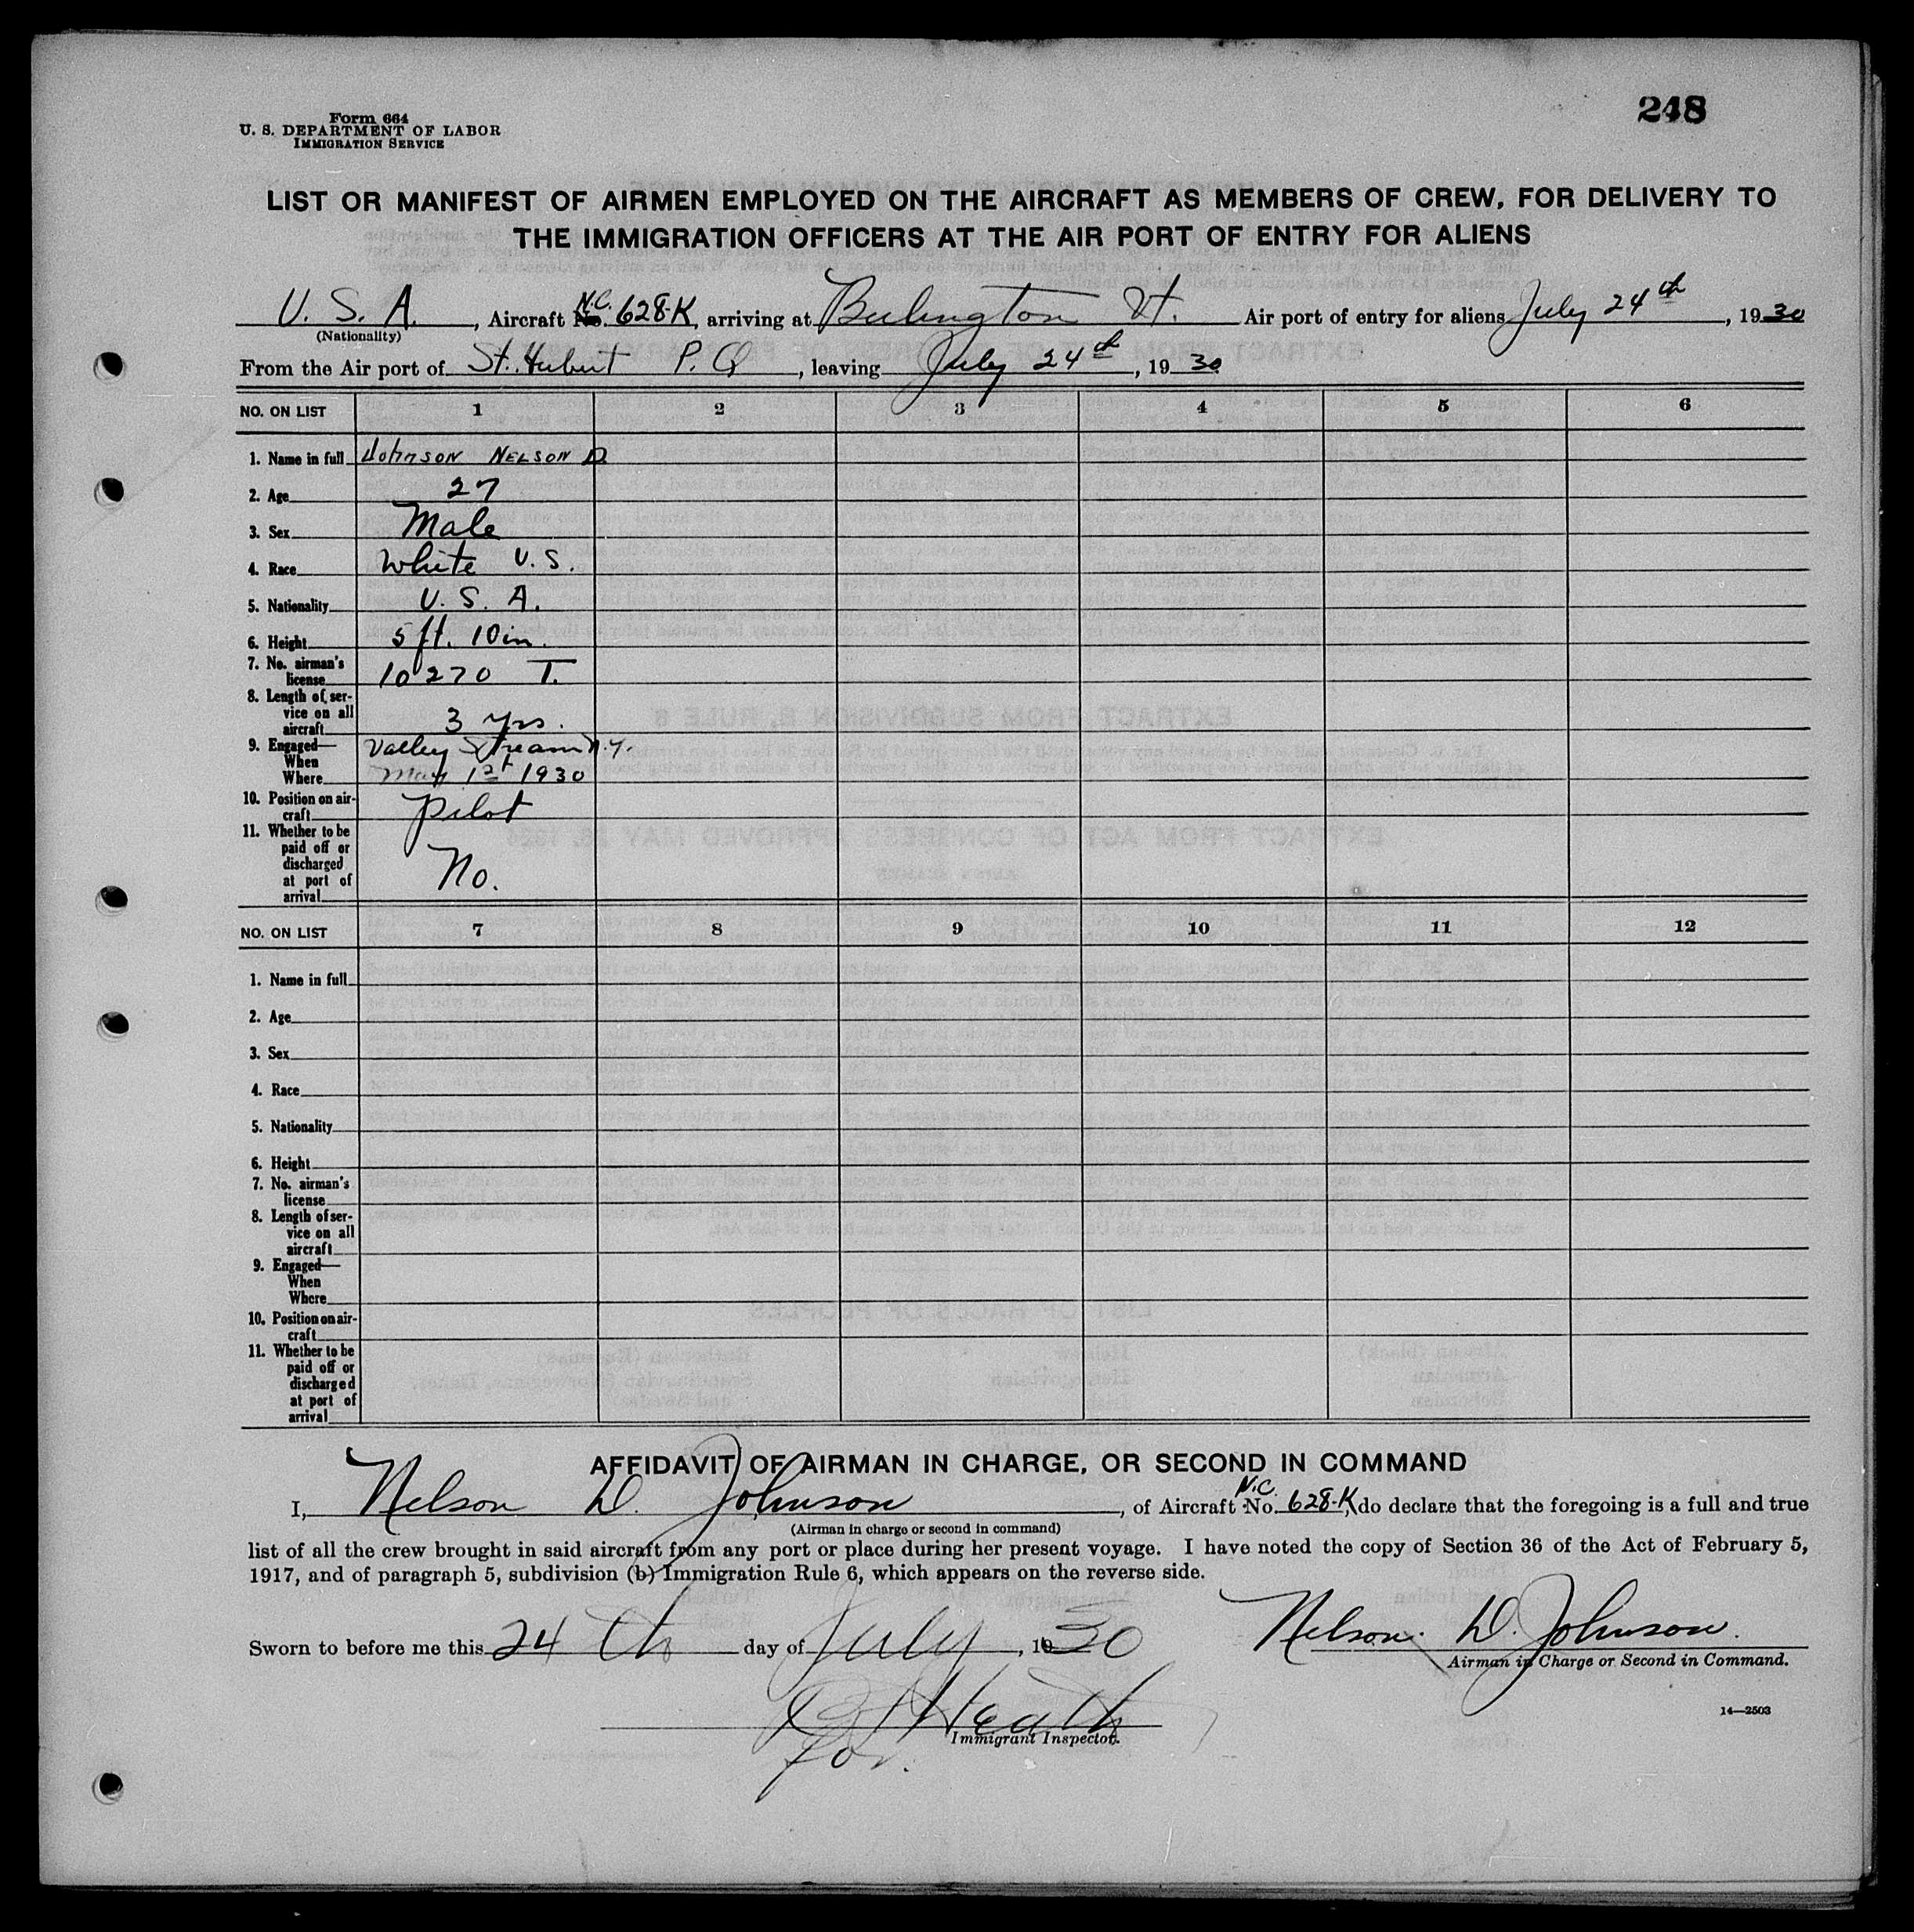 248
Form 664
U. S. DEPARTMENT OF LABOR
IMMIGRATION SERVICE
LIST OR MANIFEST OF AIRMEN EMPLOYED ON THE AIRCRAFT AS MEMBERS OF CREW, FOR DELIVERY TO
THE IMMIGRATION OFFICERS AT THE AIR PORT OF ENTRY FOR ALIENS
U. S. A., Aircraft No. N.C. 628-K, arriving at Burlington Vt. Air port of entry for aliens July 24th, 1930
(Nationality)
From the Air port of St. Hubert P. Q, leaving July 24th, 1930
NO. ON LIST 1 2 3 4 5 6
1. Name in full Johnson Nelson D.
2. Age 27
3. Sex Male
4. Race White U. S.
5. Nationality U. S. A.
6. Height 5 ft. 10 in.
7. No. airman's
license 10270 T.
8. Length of ser-
vice on all
aircraft 3 yrs.
9. Engaged— Valley Stream N.Y.
When
Where May 1st 1930
10. Position on air-
craft Pilot
11. Whether to be
paid off or
discharged
at port of
arrival No.
NO. ON LIST 7 8 9 10 11 12
1. Name in full
2. Age
3. Sex
4. Race
5. Nationality
6. Height
7. No. airman's
license
8. Length of ser-
vice on all
aircraft
9. Engaged—
When
Where
10. Position on air-
craft
11. Whether to be
paid off or
discharged
at port of
arrival
AFFIDAVIT OF AIRMAN IN CHARGE, OR SECOND IN COMMAND
I, Nelson D. Johnson, of Aircraft No. N.C. 628-K, do declare that the foregoing is a full and true
(Airman in charge or second in command)
list of all the crew brought in said aircraft from any port or place during her present voyage. I have noted the copy of Section 36 of the Act of February 5,
1917, and of paragraph 5, subdivision (b) Immigration Rule 6, which appears on the reverse side.
Sworn to before me this 24th day of July, 1930 Nelson D. Johnson.
Airman in Charge or Second in Command.
Heath
Immigrant Inspector.
for.
14—2503